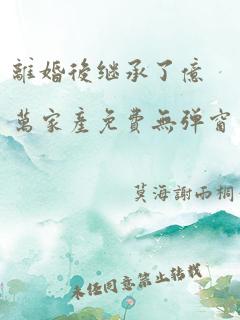 離婚後继承了億
萬家産免費無弹窗
莫海謝雨桐
未经同意禁止转载